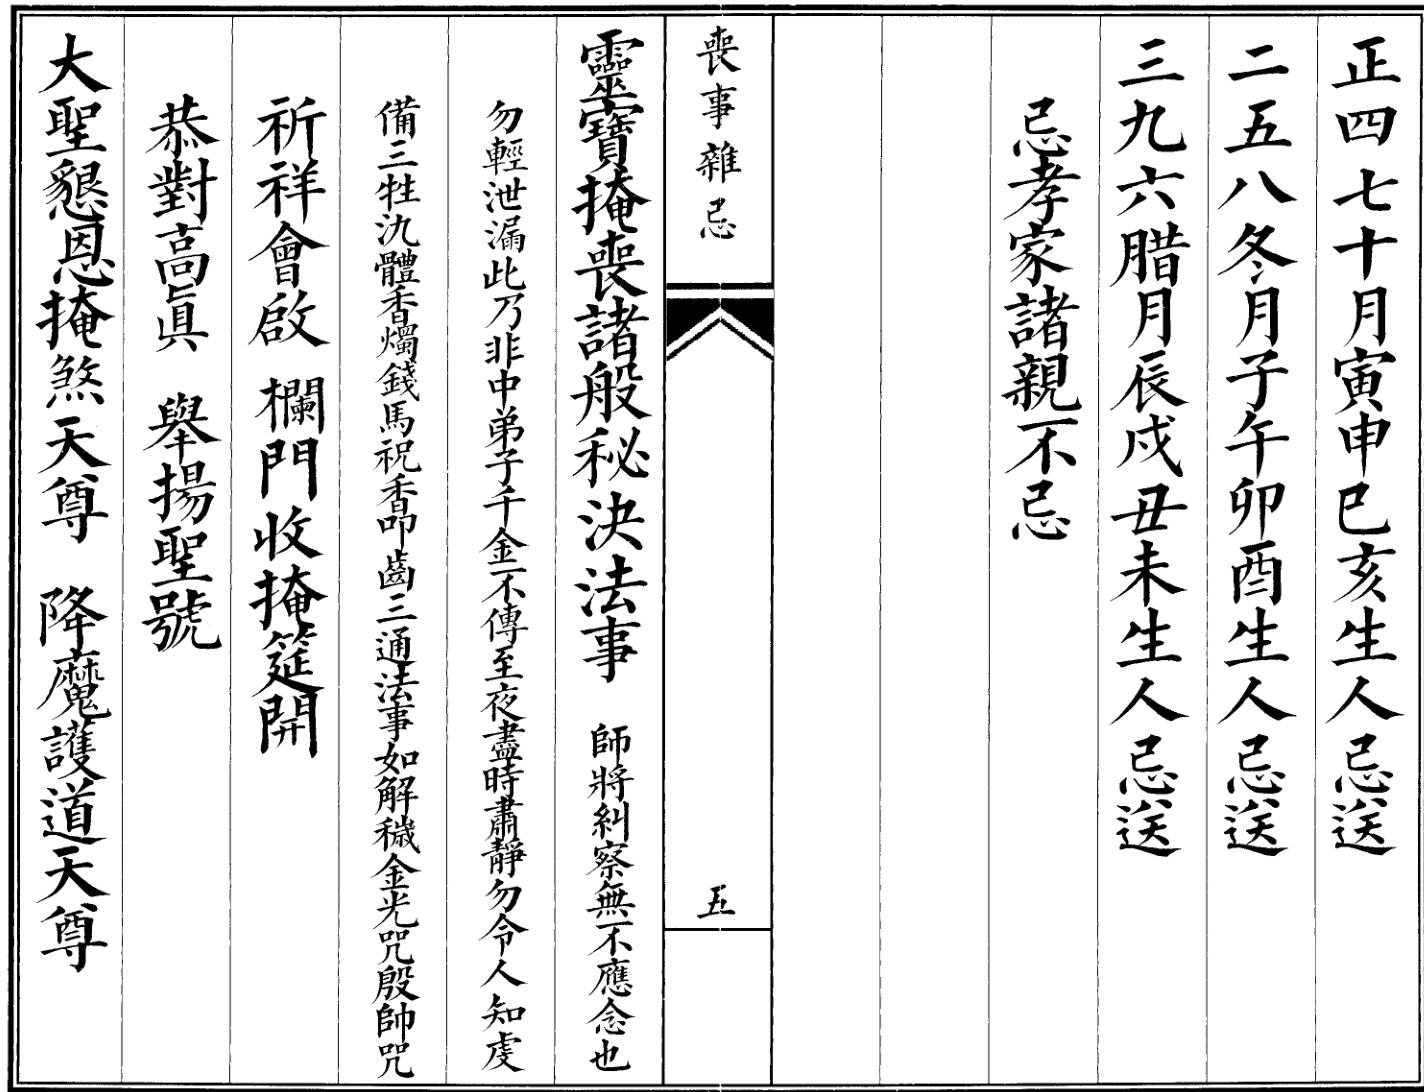 正四七十月寅申巳亥生人忌送
二五八冬月子午卯酉生人忌送
三九六腊月辰戍丑未生人忌送
忌孝家諸親不忌
喪事雜忌
五
靈寶掩喪諸般秘決法事 師將糾察無不應念也
勿輕泄漏此乃非中弟子千金不傳至夜盡時肅靜勿令人知虔
備三牲氿體香燭錢馬祝香叩齒三通法事如解穢金光咒殷帥咒
祈祥會啟 欄門收掩筵開
恭對高眞 舉揚聖號
大聖懇恩掩煞天尊 降魔護道天尊